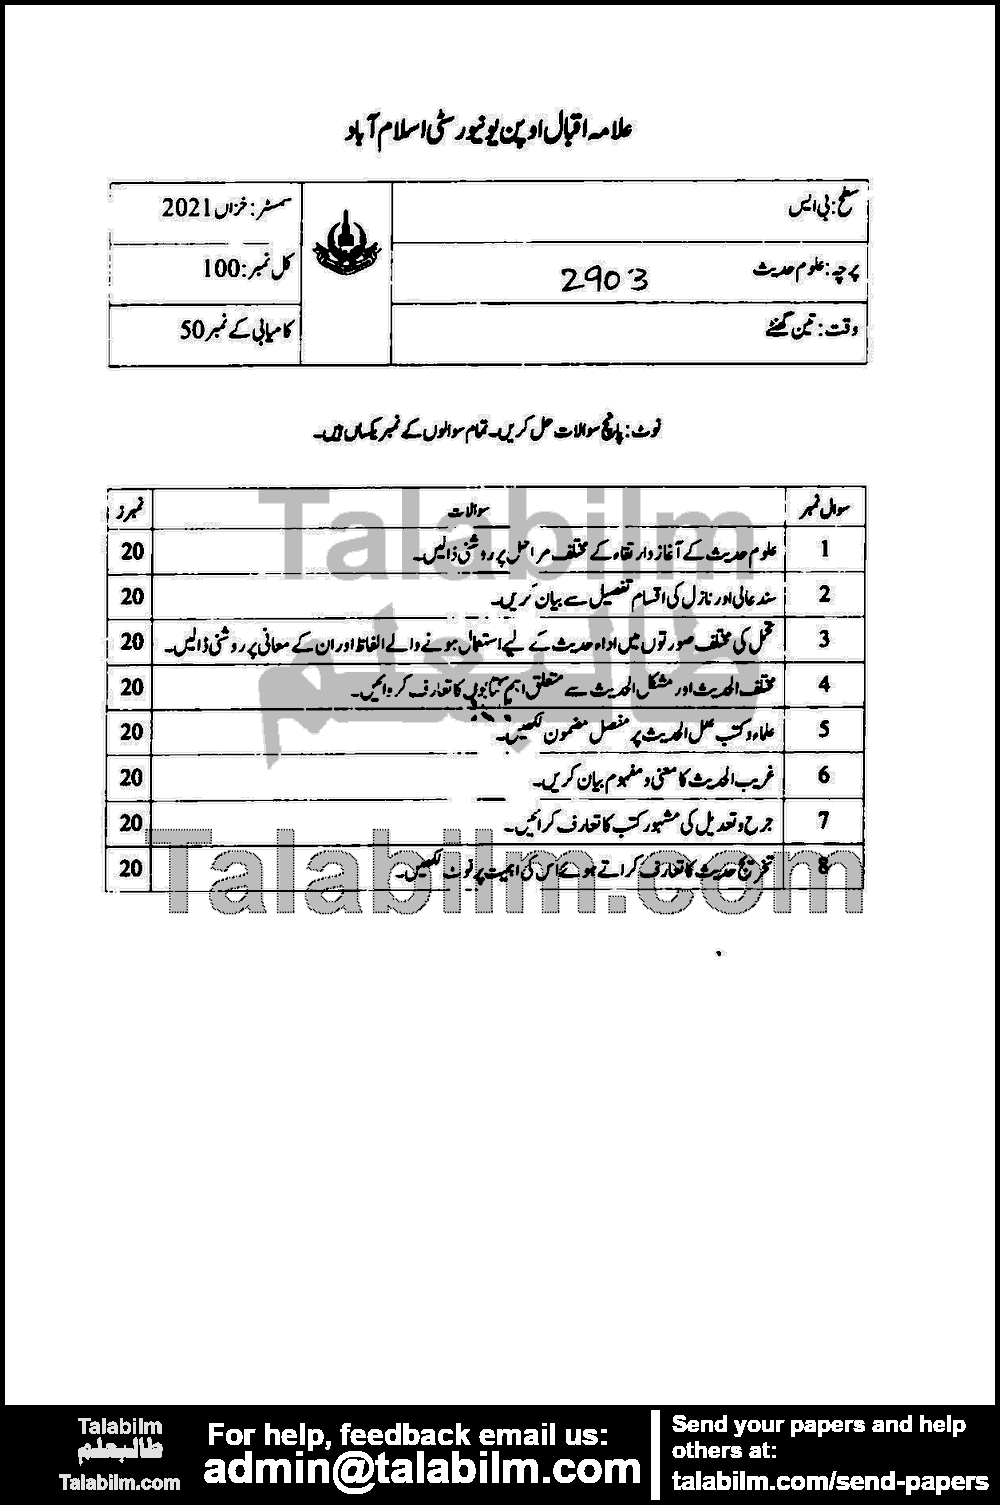 علامہ اقبال اوپن یونیورسٹی اسلام آباد
سطح: بی ایس
سمسٹر: خزاں 2021
پرچہ: علوم حدیث 2903
کل نمبر: 100
وقت: تین گھنٹے
کامیابی کے نمبر 50
نوٹ: پانچ سوالات حل کریں۔ تمام سوالوں کے نمبر یکساں ہیں۔
سوال نمبر سوالات نمبرز
1 علوم حدیث کے آغاز وارتقاء کے مختلف مراحل پر روشنی ڈالیں۔ 20
2 سند عالی اور نازل کی اقسام تفصیل سے بیان کریں۔ 20
3 تحمل کی مختلف صورتوں میں اداء حدیث کے لیے استعمال ہونے والے الفاظ اور ان کے معانی پر روشنی ڈالیں۔ 20
4 مختلف الحدیث اور مشکل الحدیث سے متعلق اہم کتابوں کا تعارف کروائیں۔ 20
5 علماء وکتب علل الحدیث پر مفصل مضمون لکھیں۔ 20
6 غریب الحدیث کا معنی و مفہوم بیان کریں۔ 20
7 جرح و تعدیل کی مشہور کتب کا تعارف کرائیں۔ 20
8 تخریج حدیث کا تعارف کراتے ہوئے اس کی اہمیت پر نوٹ لکھیں۔ 20
Talabilm
طالبعلم
Talabilm.com
Talabilm
طالبعلم
Talabilm.com
For help, feedback email us:
admin@talabilm.com
Send your papers and help
others at:
talabilm.com/send-papers